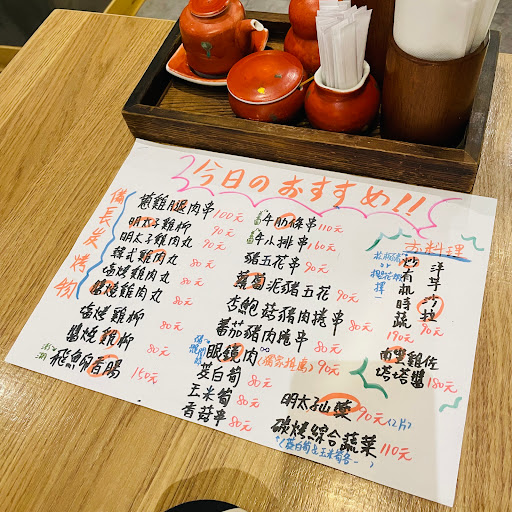 今日のおすすめ!!
備長炭烤物
蔥雞腿肉串 100元
明太子雞柳 90元
明太子雞肉丸 90元
韓式雞肉丸 80元
塩燒雞肉丸 80元
醬燒雞肉丸 80元
塩燒雞柳 80元
醬燒雞柳 80元
飛魚卵香腸 150元
牛肋條串 110元
牛小排串 160元
豬五花串 90元
蘿蔔泥豬五花 90元
杏鮑菇豬肉捲串 80元
番茄豬肉捲串 80元
眼鏡肉 (獨家推薦) 90元
茭白筍 80元
玉米筍 80元
香菇串 80元
明太子山藥 90元 (2片)
碳烤綜合蔬菜 110元
お料理
洋芋沙拉 90元
炒有机時蔬 190元
南蠻雞佐塔塔醬 180元